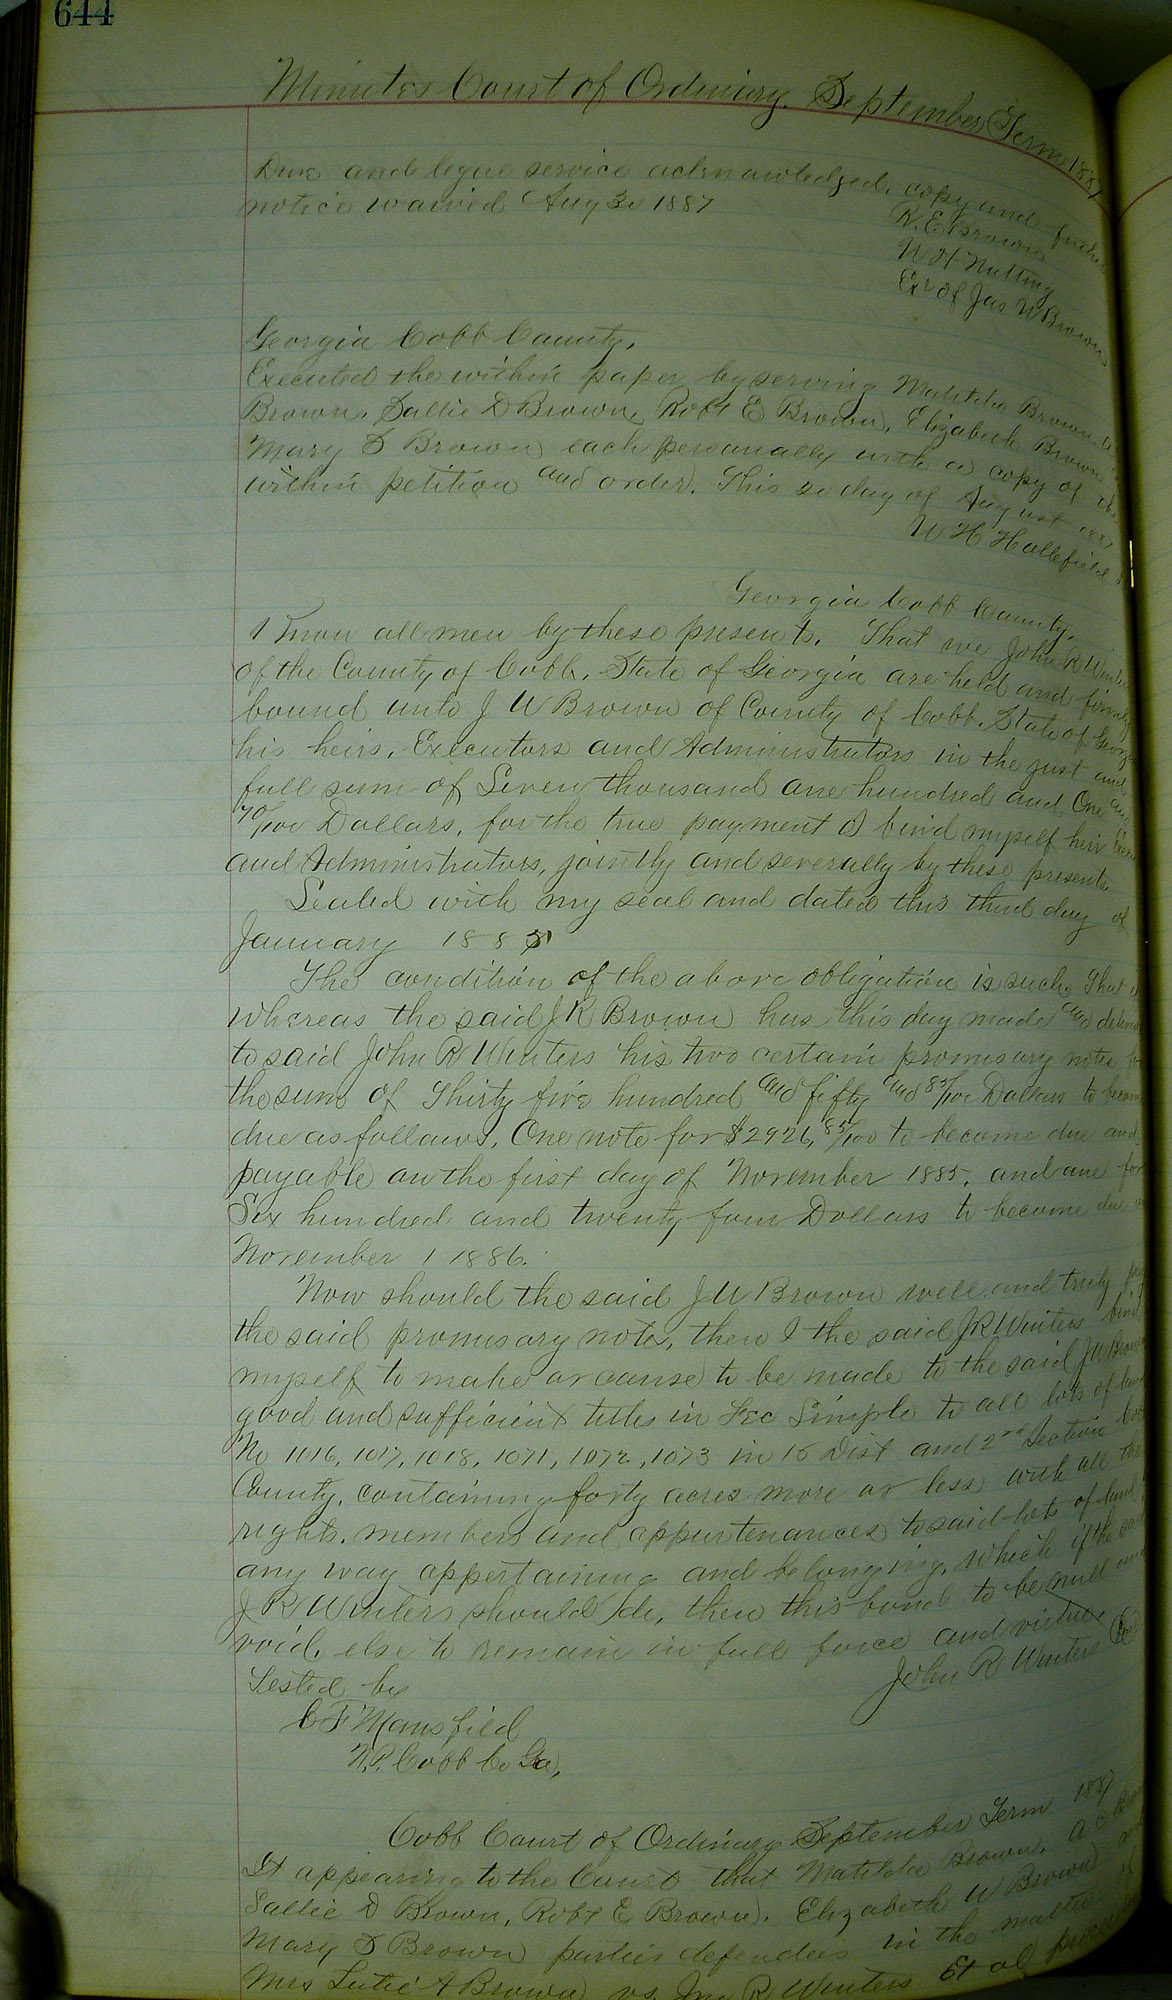 644
Minutes Court of Ordinary. September Term 1887
Due and legue service acknowledged, copy and further
notice waived Aug 30 1887
R. E Brown
W H Nutting
Exr of Jas W Brown
Georgia Cobb County.
Executed the within paper by serving Matilda Brown,
Brown. Sallie D Brown, Robt E Brown, Elizabeth Brown
Mary S Brown each personally with a copy of the
within petition and order. This 30 day of August 1887
W H
Georgia Cobb County.
Know all men by these presents. That we John R Winters
of the County of Cobb. State of Georgia are held and firmly
bound unto J W Brown of County of Cobb. State of Georgia
his heirs, Executors and Administrators in the just and
full sum of Seven thousand one hundred and One and
70/100 Dollars, for the true payment I bind myself heir
and Administrators, jointly and severally by these presents
Sealed with my seal and dated this third day of
January 1885
The condition of the above obligation is such. That
whereas the said J R Brown has this day made and
to said John R Winters his two certain promisary notes
the sum of Thirty five hundred and fifty and 85/100 Dollars to become
due as follows. One note for $2926,85/100 to become due and
payable on the first day of November 1885, and one for
Six hundred and twenty four Dollars to become due
November 1 1886.
Now should the said J W Brown well and truly pay
the said promisary notes, then I the said J R Winters bind
myself to make or cause to be made to the said J W Brown
good and sufficient titles in Fee Simple to all lots of land
No 1016, 1017, 1018, 1071, 1072, 1073 in 16 Dist and 2nd Section
County, containing forty acres more or less with all the
rights. members and appurtenances to said lots of land
any way appertaining and belonging, which if the said
J R Winters should do, then this bond to be null and
void, else to remain in full force and virtue.
John R Winters
Tested by
C F Mansfield
N.P. Cobb Co Ga,
Cobb Court of Ordinary September Term 1887
It appearing to the Court that Matilda Brown. A C
Sallie D Brown, Robt E Brown. Elizabeth W Brown
Mary S Brown parties defendeis in the matter of
Mrs A Brown vs Jno R Winters Et al